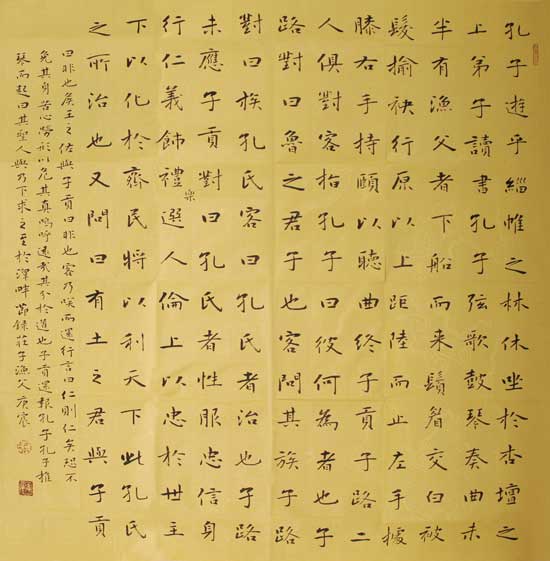 孔子遊乎緇帷之林休坐於杏壇之
上弟子讀書孔子弦歌鼓琴奏曲未
半有漁父者下船而來鬚眉交白被
髮揄袂行原以上距陸而止左手據
膝右手持頤以聽曲終子貢子路二
人俱對客指孔子曰彼何為者也子
路對曰魯之君子也客問其族子路
對曰族孔氏客曰孔氏者治也子路
未應子貢對曰孔氏者性服忠信身
行仁義飾禮樂選人倫上以忠於世主
下以化於齊民將以利天下此孔氏
之所治也又問曰有土之君與子貢
曰非也矦王之佐與子貢曰非也客乃咲而還行言曰仁則仁矣恐不
免其身苦心勞形以危其真嗚呼遠哉其分於道也子貢還報孔子孔子推
琴而起曰其聖人與乃下求之至於澤畔節録莊子漁父庚宸